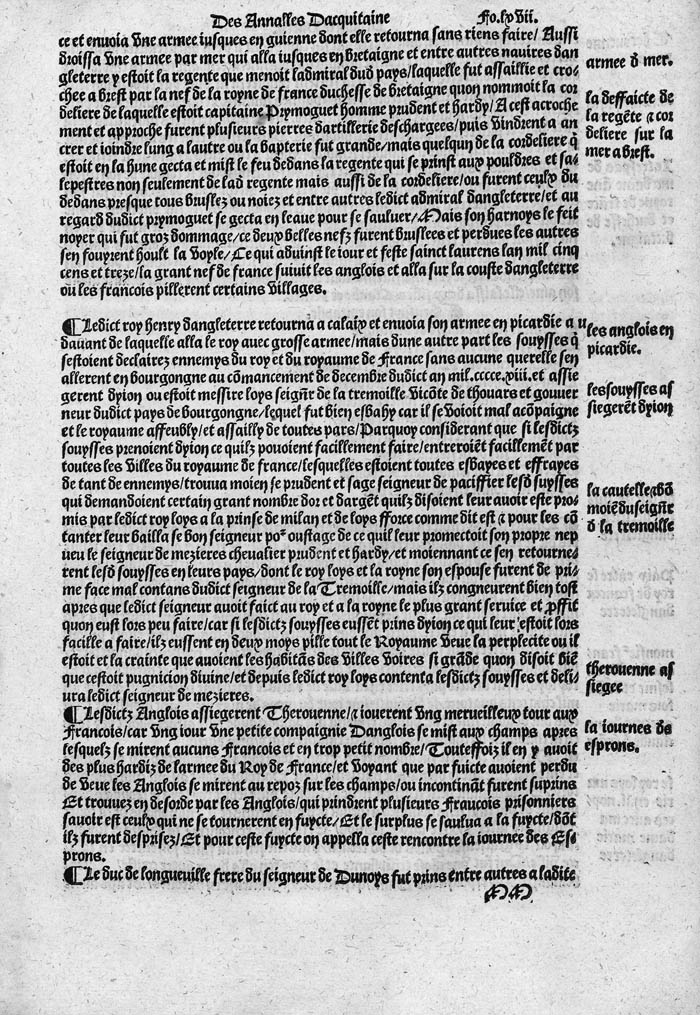 Des Annalles Dacquitaine Fo.lxvii.
ce et enuoia vne armee iusques en guienne dont elle retourna sans riens faire/ Aussi
droissa vne armee par mer qui alla iusques en bretaigne et entre autres nauires dan
gleterre y estoit la regente que menoit ladmiral dud pays/laquelle fut assaillie et cro-
chee a brest par la nef de la royne de france duchesse de bretaigne quon nommoit la cor
deliere de laquelle estoit capitaine Prymoguet homme prudent et hardy/ A cest acroche
ment et approche furent plusieurs pierres dartillerie deschargees/puis vindrent a an
crer et ioindre lung a lautre ou la bapterie fut grande/mais quelquun de la cordeliere q̃
estoit en la hune gecta et mist le feu dedans la regente qui se prinst aux pouldres et sa-
lepestres non seulement de lad regente mais aussi de la cordeliere/ou furent ceulx du
dedans presque tous bruslez ou noiez et entre autres ledict admiral dangleterre/et au
regard dudict prymoguet se gecta en leaue pour se sauluer/Mais son harnoys le feit
noyer qui fut groz dommage/ce deux belles nefz furent bruslees et perdues les autres
sen fouyrent hoult la voyle/ Ce qui aduinst le iour et feste sainct laurens lan mil cinq
cens et treze/la grant nef de france suiuit les anglois et alla sur la couste dangleterre
ou les francois pillerent certains villages.
armee d̃ mer.
la deffaicte de
la regẽte ⁊ cor
deliere sur la
mer a brest.
¶Ledict roy henry dangleterre retourna a calaix et enuoia son armee en picardie a u
dauant de laquelle alla le roy auec grosse armee/mais dune autre part les souysses q̃
sestoient declairez ennemys du roy et du royaume de France sans aucune querelle sen
allerent en bourgongne au cõmancement de decembre dudict an mil.ccccc.xiii.et assie
gerent dyion ou estoit messire loys seigñr de la tremoille vicõte de thouars et gouuer
neur dudict pays de bourgongne/lequel fut bien esbahy car il se voioit mal acõpaigne
et le royaume affeubly/et assailly de toutes pars/Parquoy considerant que si lesdictz
souysses prenoient dyion ce quilz pouoient facillement faire/entreroiẽt facillemẽt par
toutes les villes du royaume de france/lesquelles estoient toutes esbayes et effrayes
de tant de ennemys/trouua moien se prudent et sage seigneur de paciffier lesd suysses
qui demandoient certain grant nombre dor et dargẽt quilz disoient leur auoir este pro-
mis par ledict roy loys a la prinse de milan et de loys fforce comme dit est ⁊ pour les cõ
tanter leur bailla se bon seigneur po⁹ oustage de ce quil leur promectoit son propre nep
ueu le seigneur de mezieres cheualier prudent et hardy/et moiennant ce sen retourne-
rent lesd souysses en leurs pays/dont le roy loys et la royne son espouse furent de pri-
me face mal contans dudict seigneur de la Tremoille/mais ilz congneurent bien tost
apres que ledict seigneur auoit faict au roy et a la royne le plus grant seruice et ꝓffit
quon eust lors peu faire/car si lesdictz souysses eussẽt prins dyion ce qui leur estoit lors
facille a faire/ilz eussent en deux moys pille tout le Royaume veue la perplecite ou il
estoit et la crainte que auoient les habitãs des villes voires si grãde quon disoit biẽ
que cestoit pugnicion diuine/et depuis ledict roy loys contenta lesdictz souysses et deli-
ura ledict seigneur de mezieres.
les anglois en
picardie.
les souysses as
siegerẽt dyion
la cautelle ⁊ bõ
moiẽ du seigñr
d̃ la tremoille
¶Lesdictz Anglois assiegerent Therouenne/⁊ iouerent vng merueilleux tour aux
Francois/car vng iour vne petite compaignie Danglois se mist aux champs apres
lesquelz se mirent aucuns Francois et en trop petit nombre/Touteffoiz il en y auoit
des plus hardiz de larmee du Roy de France/et voyant que par fuicte auoient perdu
de veue les Anglois se mirent au repoz sur les champs/ou incontinãt furent suprins
Et trouuez en desorde par les Anglois/qui prindrent plusieurs Francois prisonniers
sauoir est ceulx qui ne se tournerent en fuycte/Et le surplus se saulua a la fuycte/dõt
ilz furent desprisez/Et pour ceste fuycte on appella ceste rencontre la iournee des Es-
prons.
therouenne as
siegee
la iournes des
esprons.
¶Le duc de longueuille frere du seigneur de Dunoys fut prins entre autres a ladite
MM